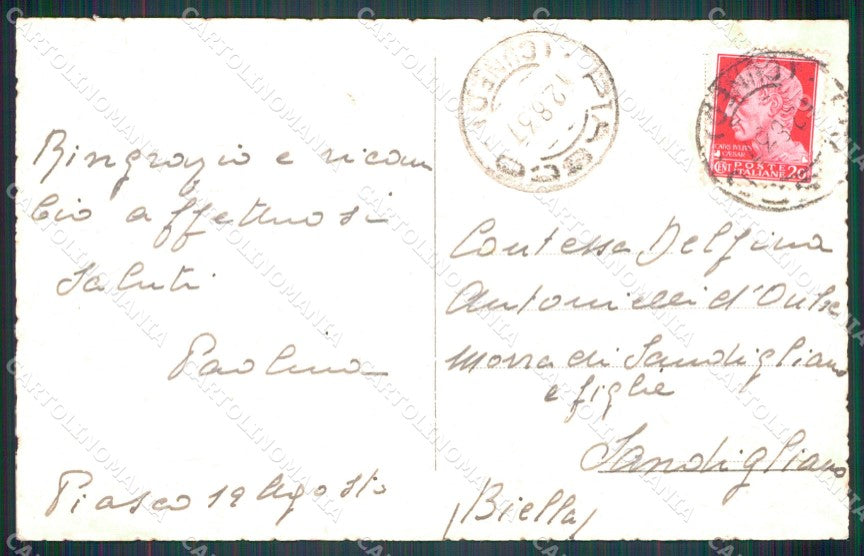 Ringrazio e ricam
bio affettuosi
saluti
Paolina
Piasco 12 Agosto
PIASCO
(CUNEO)
12.8.37
CAIVS IVLIVS
CAESAR
POSTE
CENT ITALIANE 20
Contessa Delfina
Antonielli d'Oulx
Morra di Sandigliano
e figlie
Sandigliano
(Biella)
CARTOLINOMANIA